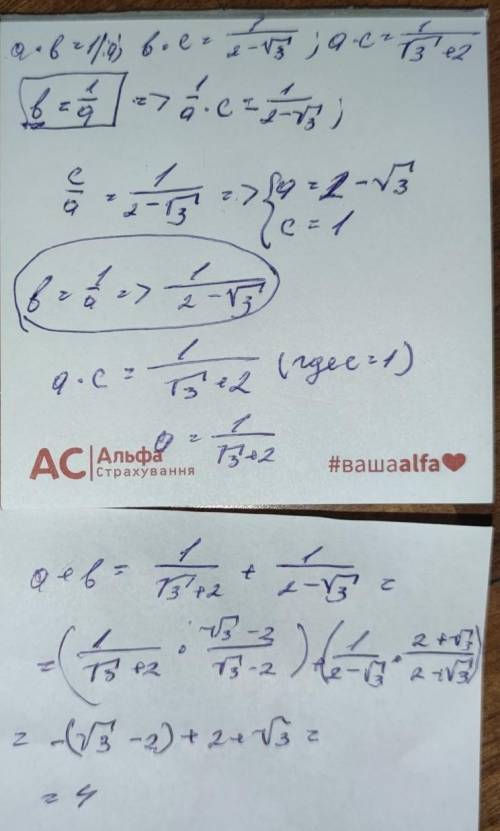 a · b = 1 | :a; b · c = 1/(2 - √3); a · c = 1/(√3 + 2)
b = 1/a => 1/a · c = 1/(2 - √3);
c/a = 1/(2 - √3) => { a = 2 - √3
c = 1
b = 1/a => 1/(2 - √3)
a · c = 1/(√3 + 2) (где c = 1)
a = 1/(√3 + 2)
АС | Альфа
Страхування
#вашаalfa
a + b = 1/(√3 + 2) + 1/(2 - √3) =
= (1/(√3 + 2) · (√3 - 2)/(√3 - 2)) + (1/(2 - √3) · (2 + √3)/(2 + √3))
= -(√3 - 2) + 2 + √3 =
= 4